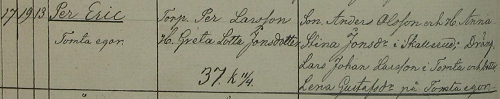 17 19 13 Per Eric
Tomta egor.
Torp. Per Larsson
H. Greta Lotta Jonsdotter
37. k 11/4.
Son Anders Olsson och H. Anna
Stina Jonsdr i Skallerud; Dräng.
Lars Johan Larsson i Tomta och
Lena Gustafsdr på Tomta egor.